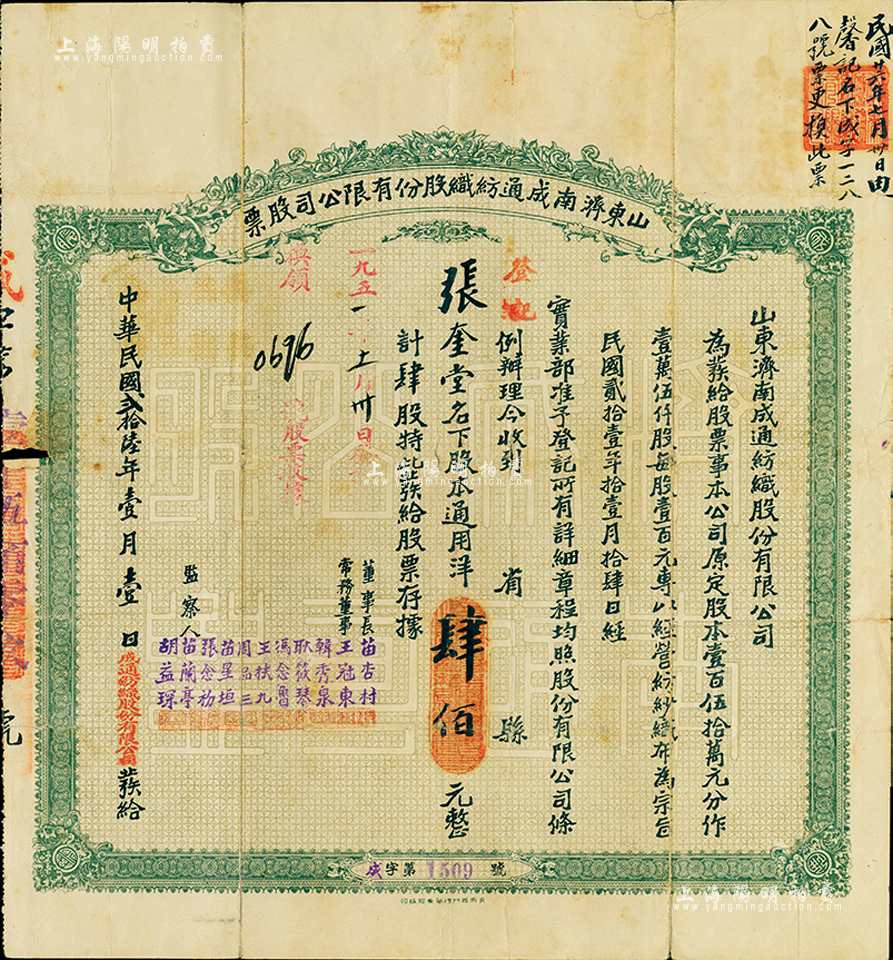 民國廿六年七月卅日由
馨記名下成字一二八
八號票更換此票
山東濟南成通紡織股份有限公司股票
山東濟南成通紡織股份有限公司
為發給股票事本公司原定股本壹百伍拾萬元分作
壹萬伍仟股每股壹百元專以經營紡紗織布為宗旨
民國貳拾壹年拾壹月拾肆日經
實業部准予登記所有詳細章程均照股份有限公司條
例辦理今收到 省 縣
登記
張奎堂名下股本通用洋肆佰元整
計肆股特此發給股票存據
一九五一 十 月卅日
換領
0696
股票
董事長 苗杏村
常務董事 王冠東
韓秀泉
耿筱琴
馮念魯
王扶九
周品三
苗星垣
張念初
監察人 苗蘭亭
胡益琛
中華民國貳拾陸年壹月壹日成通紡織股份有限公司發給
成字第1509號
號
上海陽明拍賣
www.yangmingauction.com
上海陽明拍賣
www.yangmingauction.com
上海陽明拍賣
www.yangmingauction.com